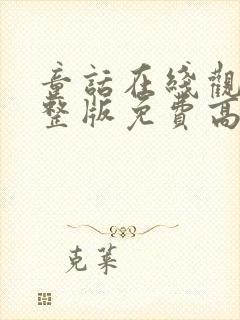 童話在綫觀
整版免費高
克萊